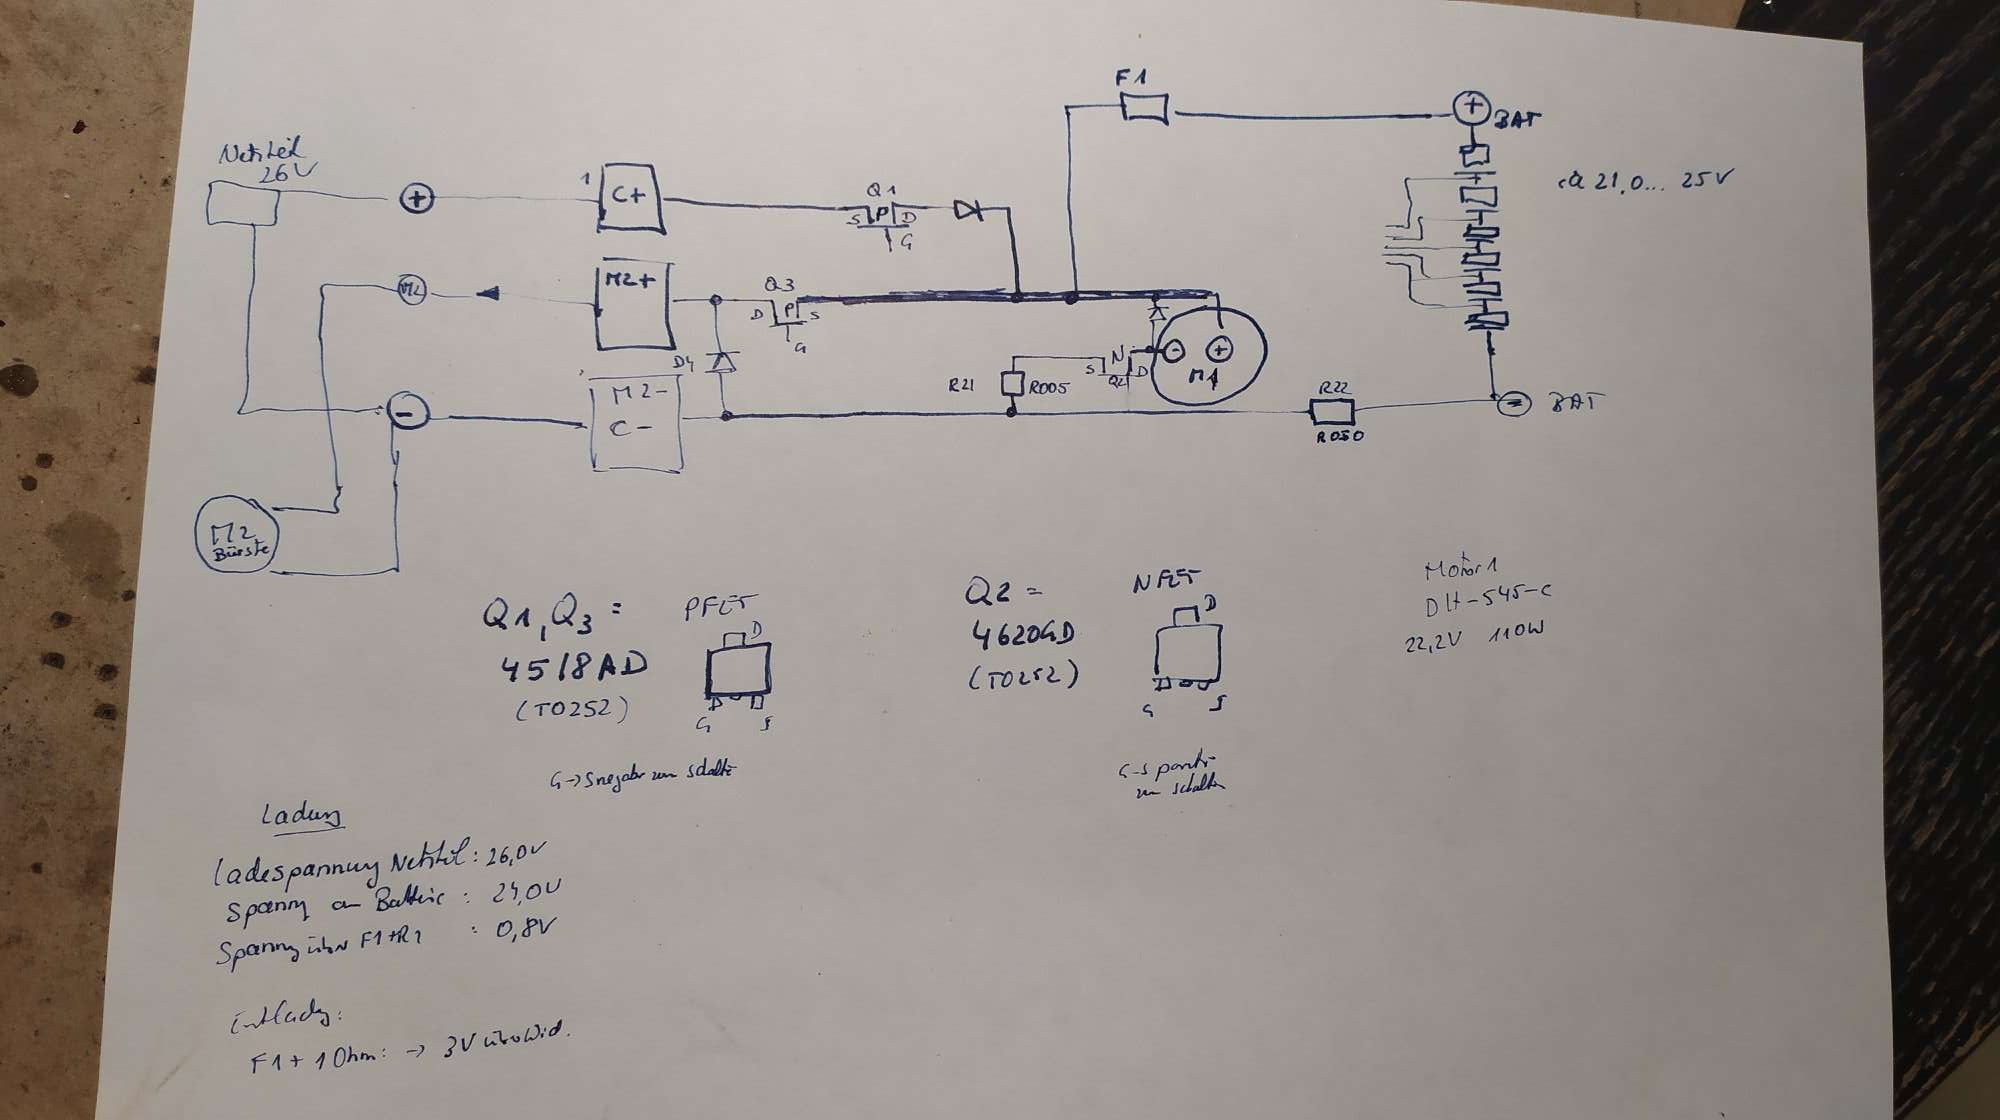 F1
+ BAT
Netzteil
26V
+
1
C+
Q1
S P D
G
ca 21,0... 25V
M2
M2+
Q3
D P S
G
D4
M2-
C-
-
R21
R005
N
S Q2 D
- +
M1
R22
R050
- BAT
M2
Bürste
Q1, Q3 =
4518AD
(TO252)
PFET
D
G S
Q2 =
4620GD
(TO252)
NFET
D
G S
Motor 1
DH-545-C
22,2V 110W
G-S
Ladung
Ladespannung Netzteil: 26,0V
Spanng an Batterie: 24,0V
Spanng über F1+R1 : 0,8V
Entladg:
F1 + 1 Ohm: → 3V über Wid.